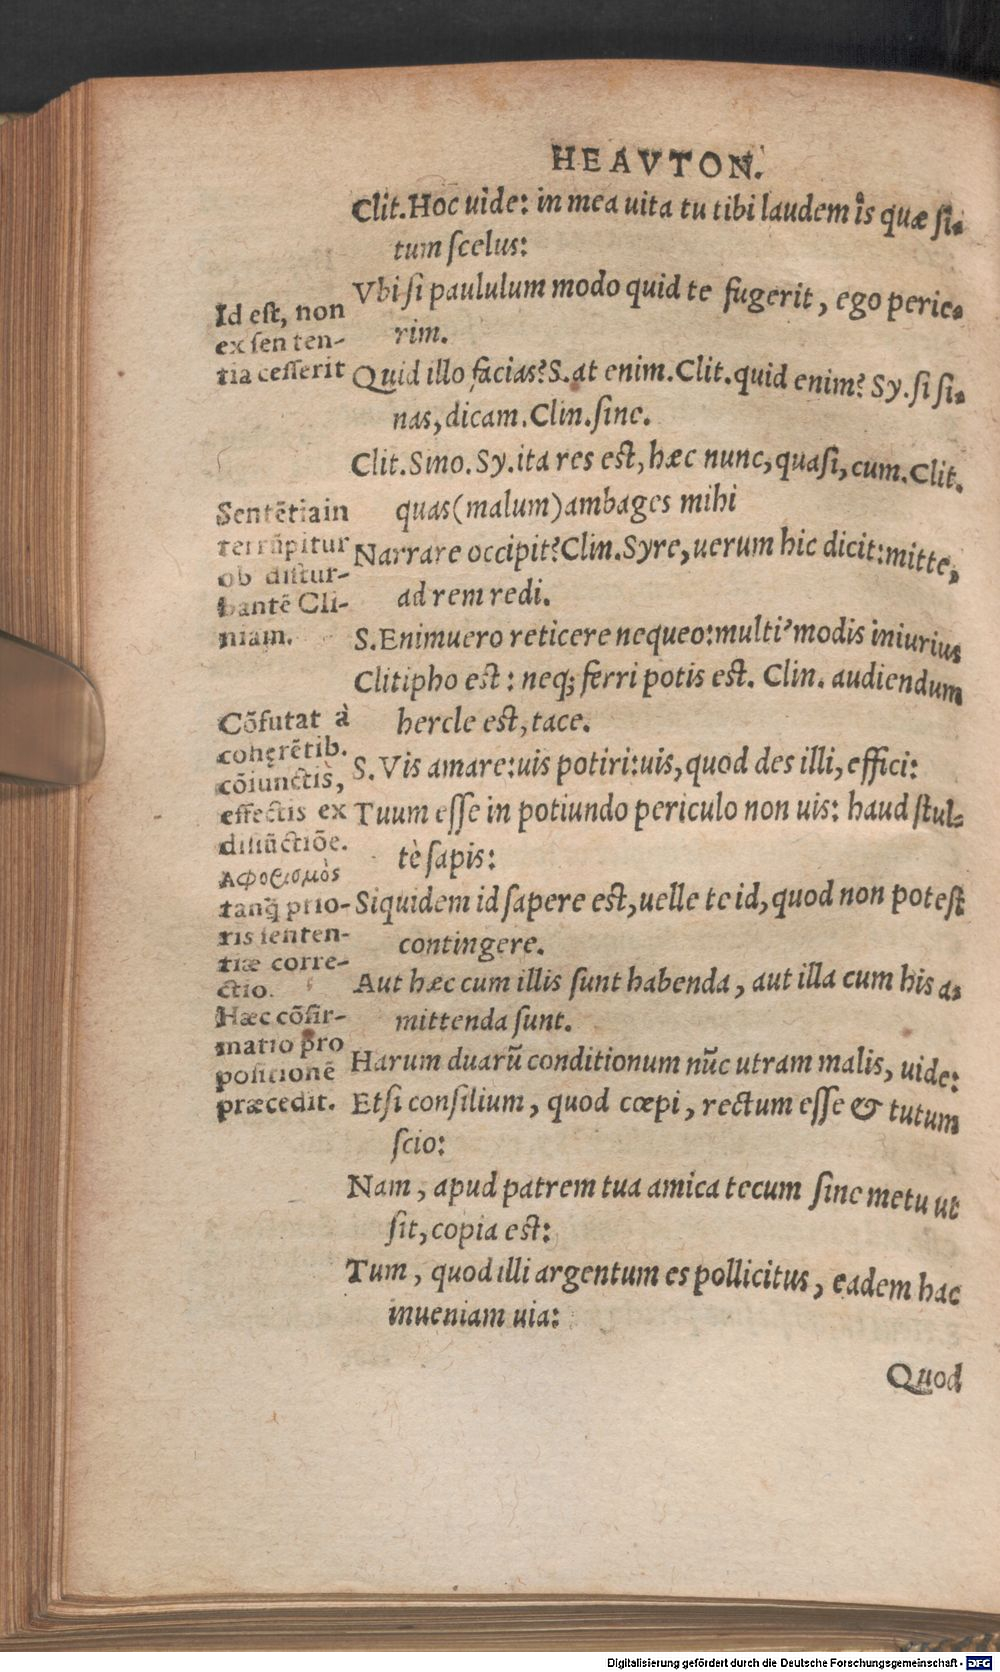 HEAVTON.
Clit.Hoc uide: in mea uita tu tibi laudem is quæ si-
tum scelus:
Vbi si paululum modo quid te fugerit, ego perie-
rim.
Quid illo facias?S.at enim.Clit.quid enim? Sy.si si-
nas, dicam.Clin.sine.
Clit.Sino.Sy.ita res est, hæc nunc, quasi, cum.Clit.
quas(malum)ambages mihi
Narrare occipit?Clin.Syre, uerum hic dicit:mitte,
ad rem redi.
S.Enimuero reticere nequeo:multi'modis iniurius
Clitipho est: neq; ferri potis est. Clin. audiendum
hercle est, tace.
S.Vis amare:uis potiri:uis, quod des illi, effici:
Tuum esse in potiundo periculo non uis: haud stul-
tè sapis:
Siquidem id sapere est, uelle te id, quod non potest
contingere.
Aut hæc cum illis sunt habenda, aut illa cum his a-
mittenda sunt.
Harum duarũ conditionum nũc utram malis, uide:
Etsi consilium, quod cœpi, rectum esse & tutum
scio:
Nam, apud patrem tua amica tecum sine metu ut
sit, copia est:
Tum, quod illi argentum es pollicitus, eadem hac
inueniam uia:
Quod
Id est, non
ex sen ten-
tia cesserit
Sentẽtiain
terrũpitur
ob distur-
bantẽ Cli-
niam.
Cõfutat à
cohęrẽtib.
cõiunctis,
effectis ex
disiũctiõe.
Αφορισμὸς
tanq̃ prio-
ris senten-
tiæ corre-
ctio.
Hæc cõfir-
matio pro
positionẽ
præcedit.
Digitalisierung gefördert durch die Deutsche Forschungsgemeinschaft - DFG